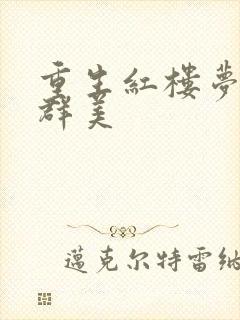 重生紅樓夢
群美
邁克尔特雷納